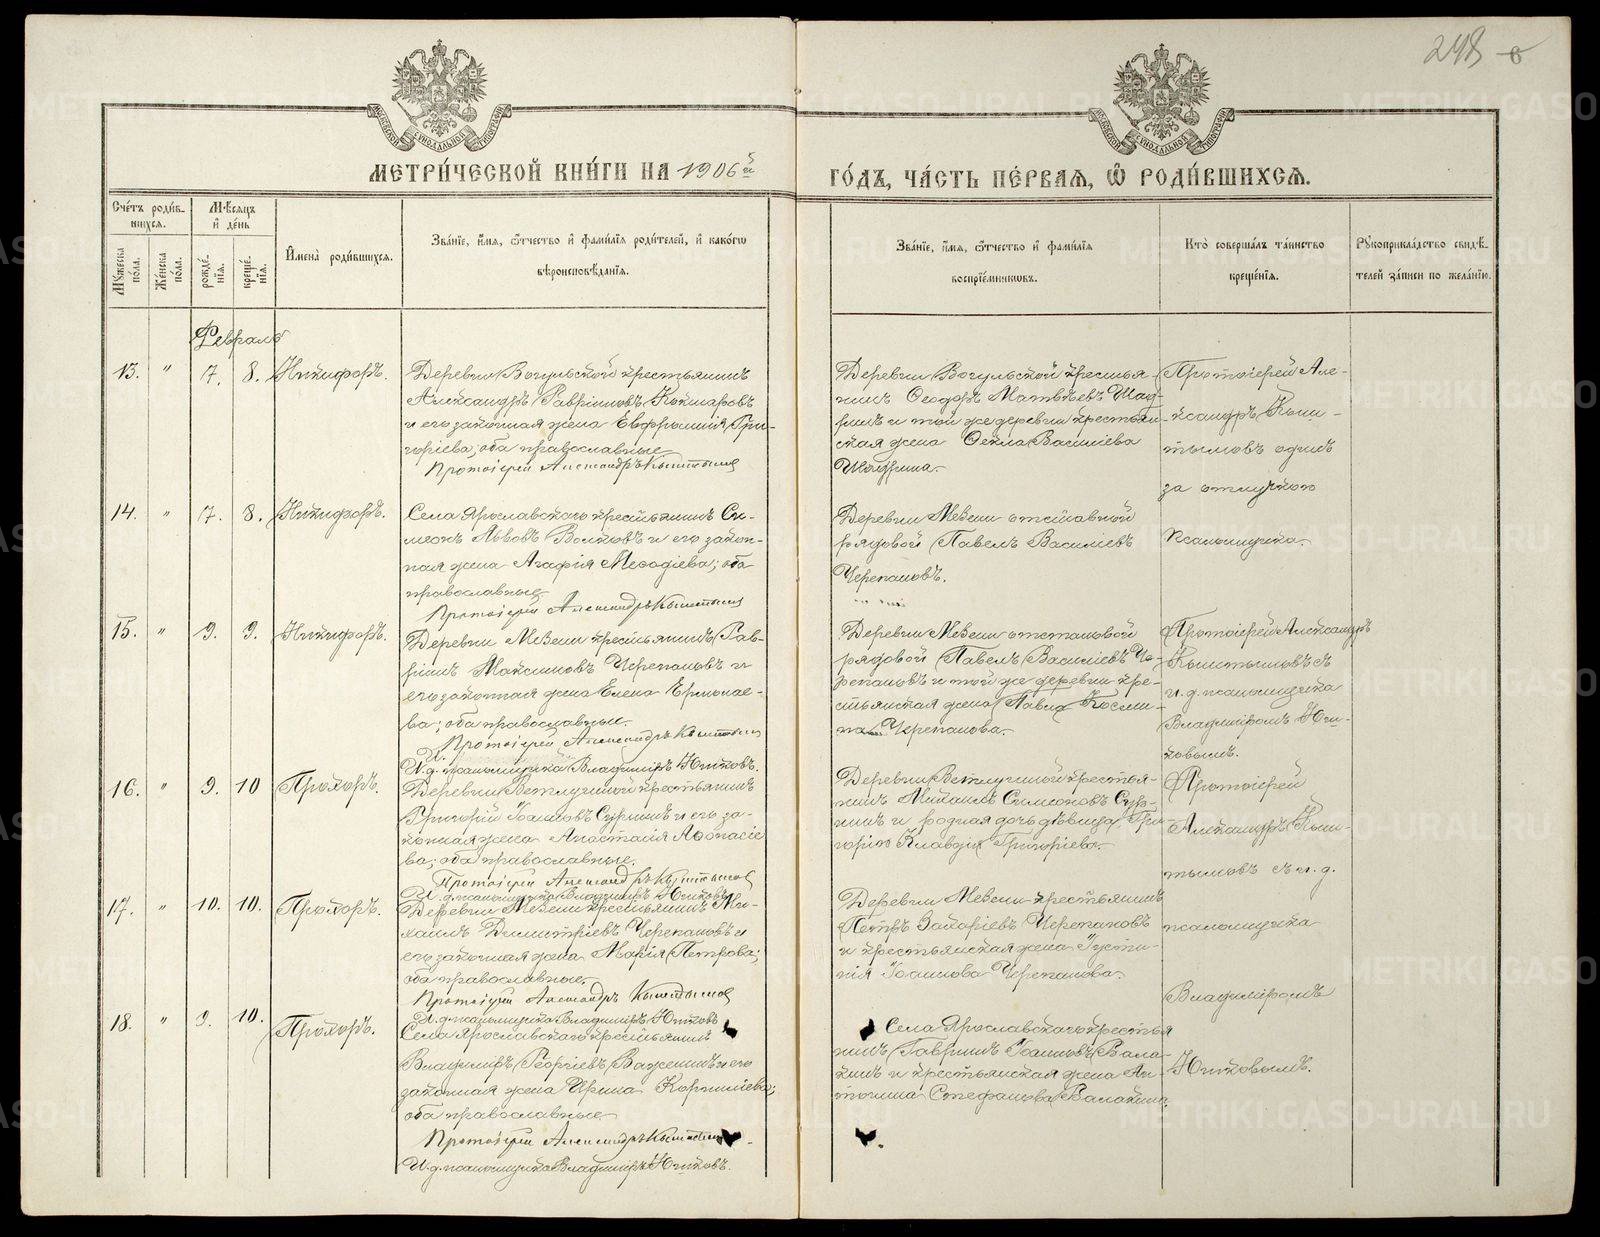 248
МОСКОВСКОЙ СѴНОДАЛЬНОЙ ТИПОГРАФІИ
МОСКОВСКОЙ СѴНОДАЛЬНОЙ ТИПОГРАФІИ
МЕТРИ́ЧЕСКОЙ КНИ́ГИ НА 1906й
ГО́ДЪ, ЧА́СТЬ ПЕ́РВАЯ, Ѽ РОДИ́ВШИХСЯ.
Сче́тъ роди́в-
шихся.
Мѣ́сяцъ
и҆ де́нь
Мꙋ́жеска
по́ла.
Же́нска
по́ла.
рожде́-
нія.
креще́-
нія.
И҆мена̀ роди́вшихся.
Зва́ніе, и҆́мя, ѻ҆́тчество и҆ фами́лія роди́телей, и҆ како́гѡ
вѣроисповѣ́данія.
Зва́ніе, и҆́мя, ѻ҆́тчество и҆ фами́лія
воспріе́мникѡвъ.
Кто̀ соверша́лъ та́инство
креще́нія.
Рꙋкоприкла́дство свидѣ́-
телей за́писи по жела́нію.
Февраль
13. " 7. 8. Никифоръ.
Деревни Вогульской крестьянинъ
Александръ Гавріиловъ Кошкаровъ
и его законная жена Евфросинія Гри-
горіева, оба православные
Протоіерей Александръ Кыштымов
Деревни Вогульской крестья-
нинъ Ѳеодоръ Матвѣевъ Шад-
ринъ и той же деревни крестьян-
ская жена Ѳекла Васильева
Шадрина.
Протоіерей Але-
ксандръ Кыш-
тымовъ одинъ
за отлучкою
псаломщика.
14. " 7. 8. Никифоръ.
Села Ярославскаго крестьянинъ Си-
меонъ Львовъ Волковъ и его закон-
ная жена Агафія Меѳодіева; оба
православные
Протоіерей Александръ Кыштымов
Деревни Мѣзени отставной
рядовой Павелъ Василіевъ
Черепановъ.
15. " 9. 9. Никифоръ.
Деревни Мѣзени крестьянинъ Гав-
ріилъ Максимовъ Черепановъ и
его законная жена Елена Ермолае-
ва; оба православные.
Протоіерей Александръ Кыштымов
И. д. псаломщика Владиміръ Южковъ.
Деревни Мѣзени отставной
рядовой Павелъ Василіевъ Че-
репановъ и той же деревни кре-
стьянская жена Павла Косми-
на Черепанова.
Протоіерей Александръ
Кыштымовъ съ
и. д. псаломщика
Владиміромъ Юж-
ковымъ.
16. " 9. 10 Прохоръ.
Деревни Ветлугиной крестьянинъ
Григорій Іоанновъ Суринъ и его за-
конная жена Анастасія Аѳанасіе
ва; оба православные.
Протоіерей Александръ Кыштымов
И. д. псаломщика Владиміръ Южковъ
Деревни Ветлугиной крестья-
нинъ Михаилъ Симеоновъ Сур-
нинъ и родная дочь дѣвица Гри-
горію Клавдія Григоріева.
Протоіерей
Александръ Кыш-
тымовъ съ и. д.
псаломщика
Владиміромъ
Южковымъ.
17. " 10. 10. Прохоръ.
Деревни Мѣзени крестьянинъ Ми-
хаилъ Димитріевъ Черепановъ и
его законная жена Марія Петрова;
оба православные.
Протоіерей Александръ Кыштымов
И. д. псаломщика Владиміръ Южковъ
Деревни Мѣзени крестьянинъ
Петръ Захаріевъ Черепановъ
и крестьянская жена Іусти-
нія Іоаннова Черепанова.
18. " 9. 10. Прохоръ.
Села Ярославскаго крестьянинъ
Владиміръ Георгіевъ Важенинъ и его
законная жена Ирина Корниліева;
оба православные
Протоіерей Александръ Кыштымов
И. д. псаломщика Владиміръ Южковъ.
Села Ярославскаго крестья
нинъ Гавріилъ Іоанновъ Вала-
кинъ и крестьянская жена Ан-
тонина Стефанова Валакина.